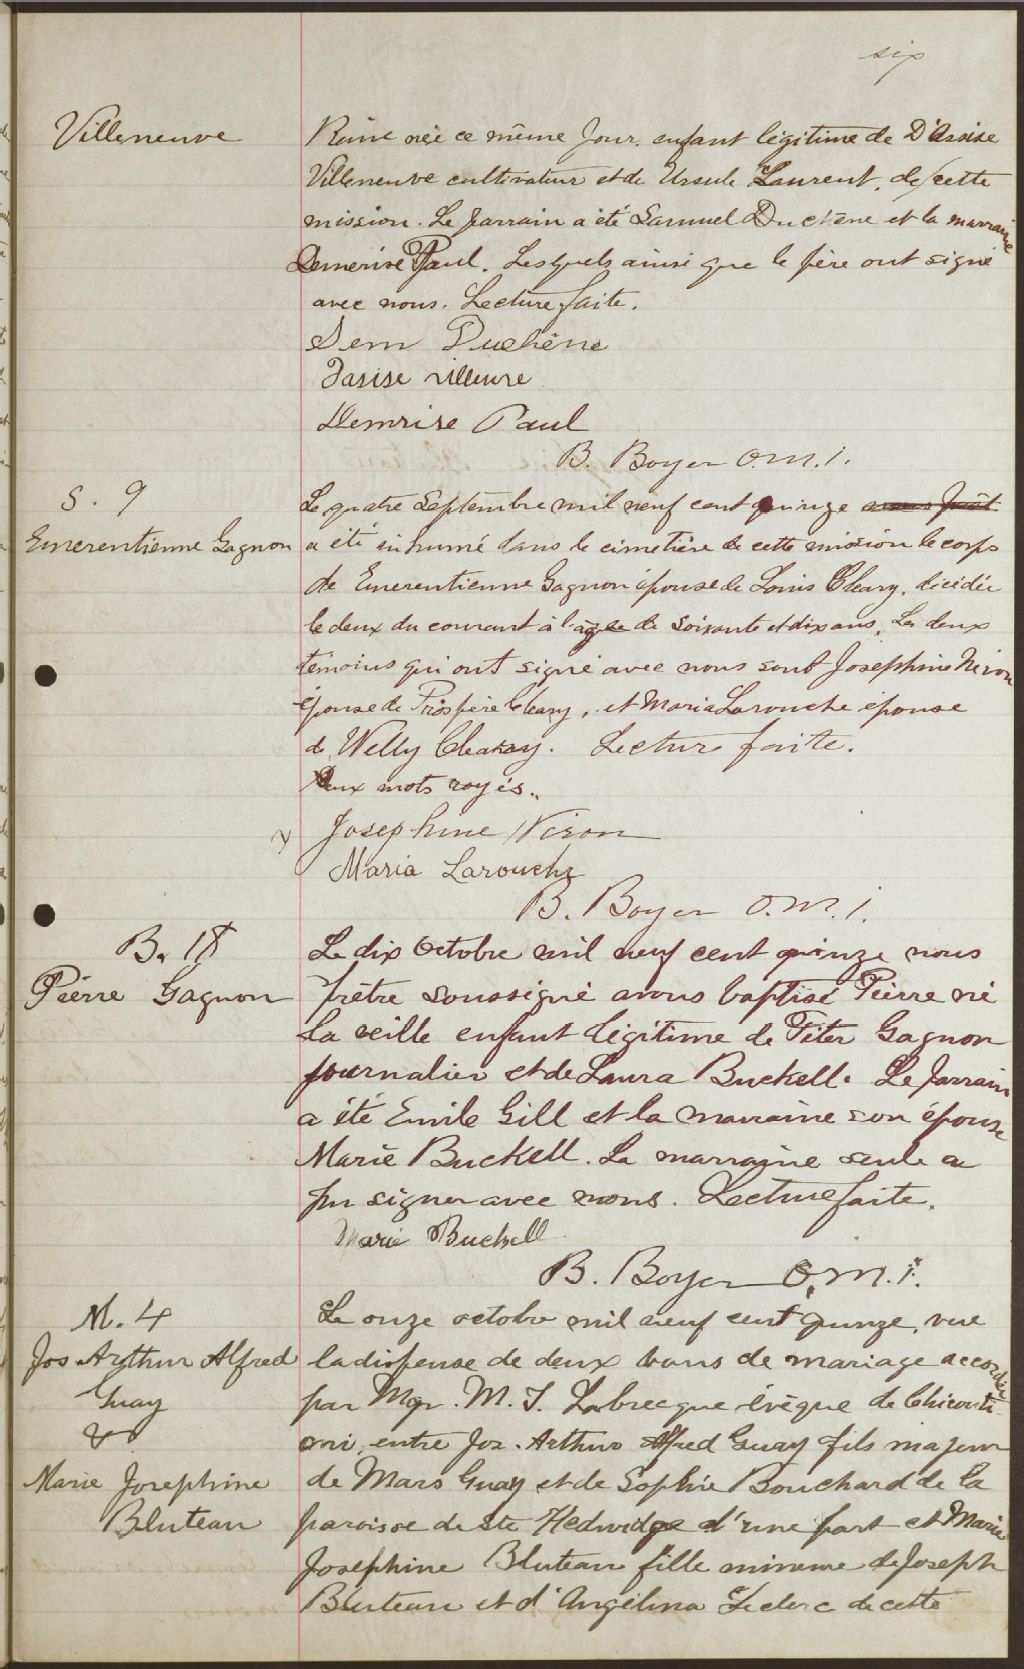 six
Villeneuve
Reine née ce même jour, enfant légitime de D'Assise
Villeneuve cultivateur et de Ursule Laurent, de cette
mission. Le parrain a été Samuel Duchêne et la marraine
Démerise Paul. Lesquels ainsi que le père ont signé
avec nous. Lecture faite.
Sem Duchêne
Dasise villeuve
Demrise Paul
B. Boyer O.M.I.
S. 9
Emerentienne Gagnon
Le quatre Septembre mil neuf cent quinze
a été inhumé dans le cimetière de cette mission le corps
de Emerentienne Gagnon épouse de Louis Cleary, décédée
le deux du courant à l'âge de soixante et dix ans. Les deux
témoins qui ont signé avec nous sont Josephine Niron
épouse de Prospère Cleary, et Maria Larouche épouse
de Welly Cleary. Lecture faite.
Deux mots rayés..
Josephine Niron
Maria Larouche
B. Boyer O.M.I.
B. 18
Pierre Gagnon
Le dix Octobre mil neuf cent quinze nous
prêtre soussigné avons baptisé Pierre né
la veille enfant légitime de Piter Gagnon
journalier et de Laura Buckell. Le parrain
a été Emile Gill et la marraine son épouse
Marie Buckell. La marraine seule a
pu signer avec nous. Lecture faite.
Marie Buckell
B. Boyer O.M.I.
M. 4
Jos Arthur Alfred
Guay
&
Marie Josephine
Bluteau
Le onze octobre mil neuf cent quinze, vue
la dispense de deux bans de mariage accordée
par Mgr. M. T. Labrecque évêque de Chicouti
mi, entre Jos. Arthur Alfred Guay fils majeur
de Mars Guay et de Sophie Bouchard de la
paroisse de Ste Hedwidge d'une part et Marie
Josephine Bluteau fille mineure de Joseph
Bluteau et d'Angélina Leclerc de cette